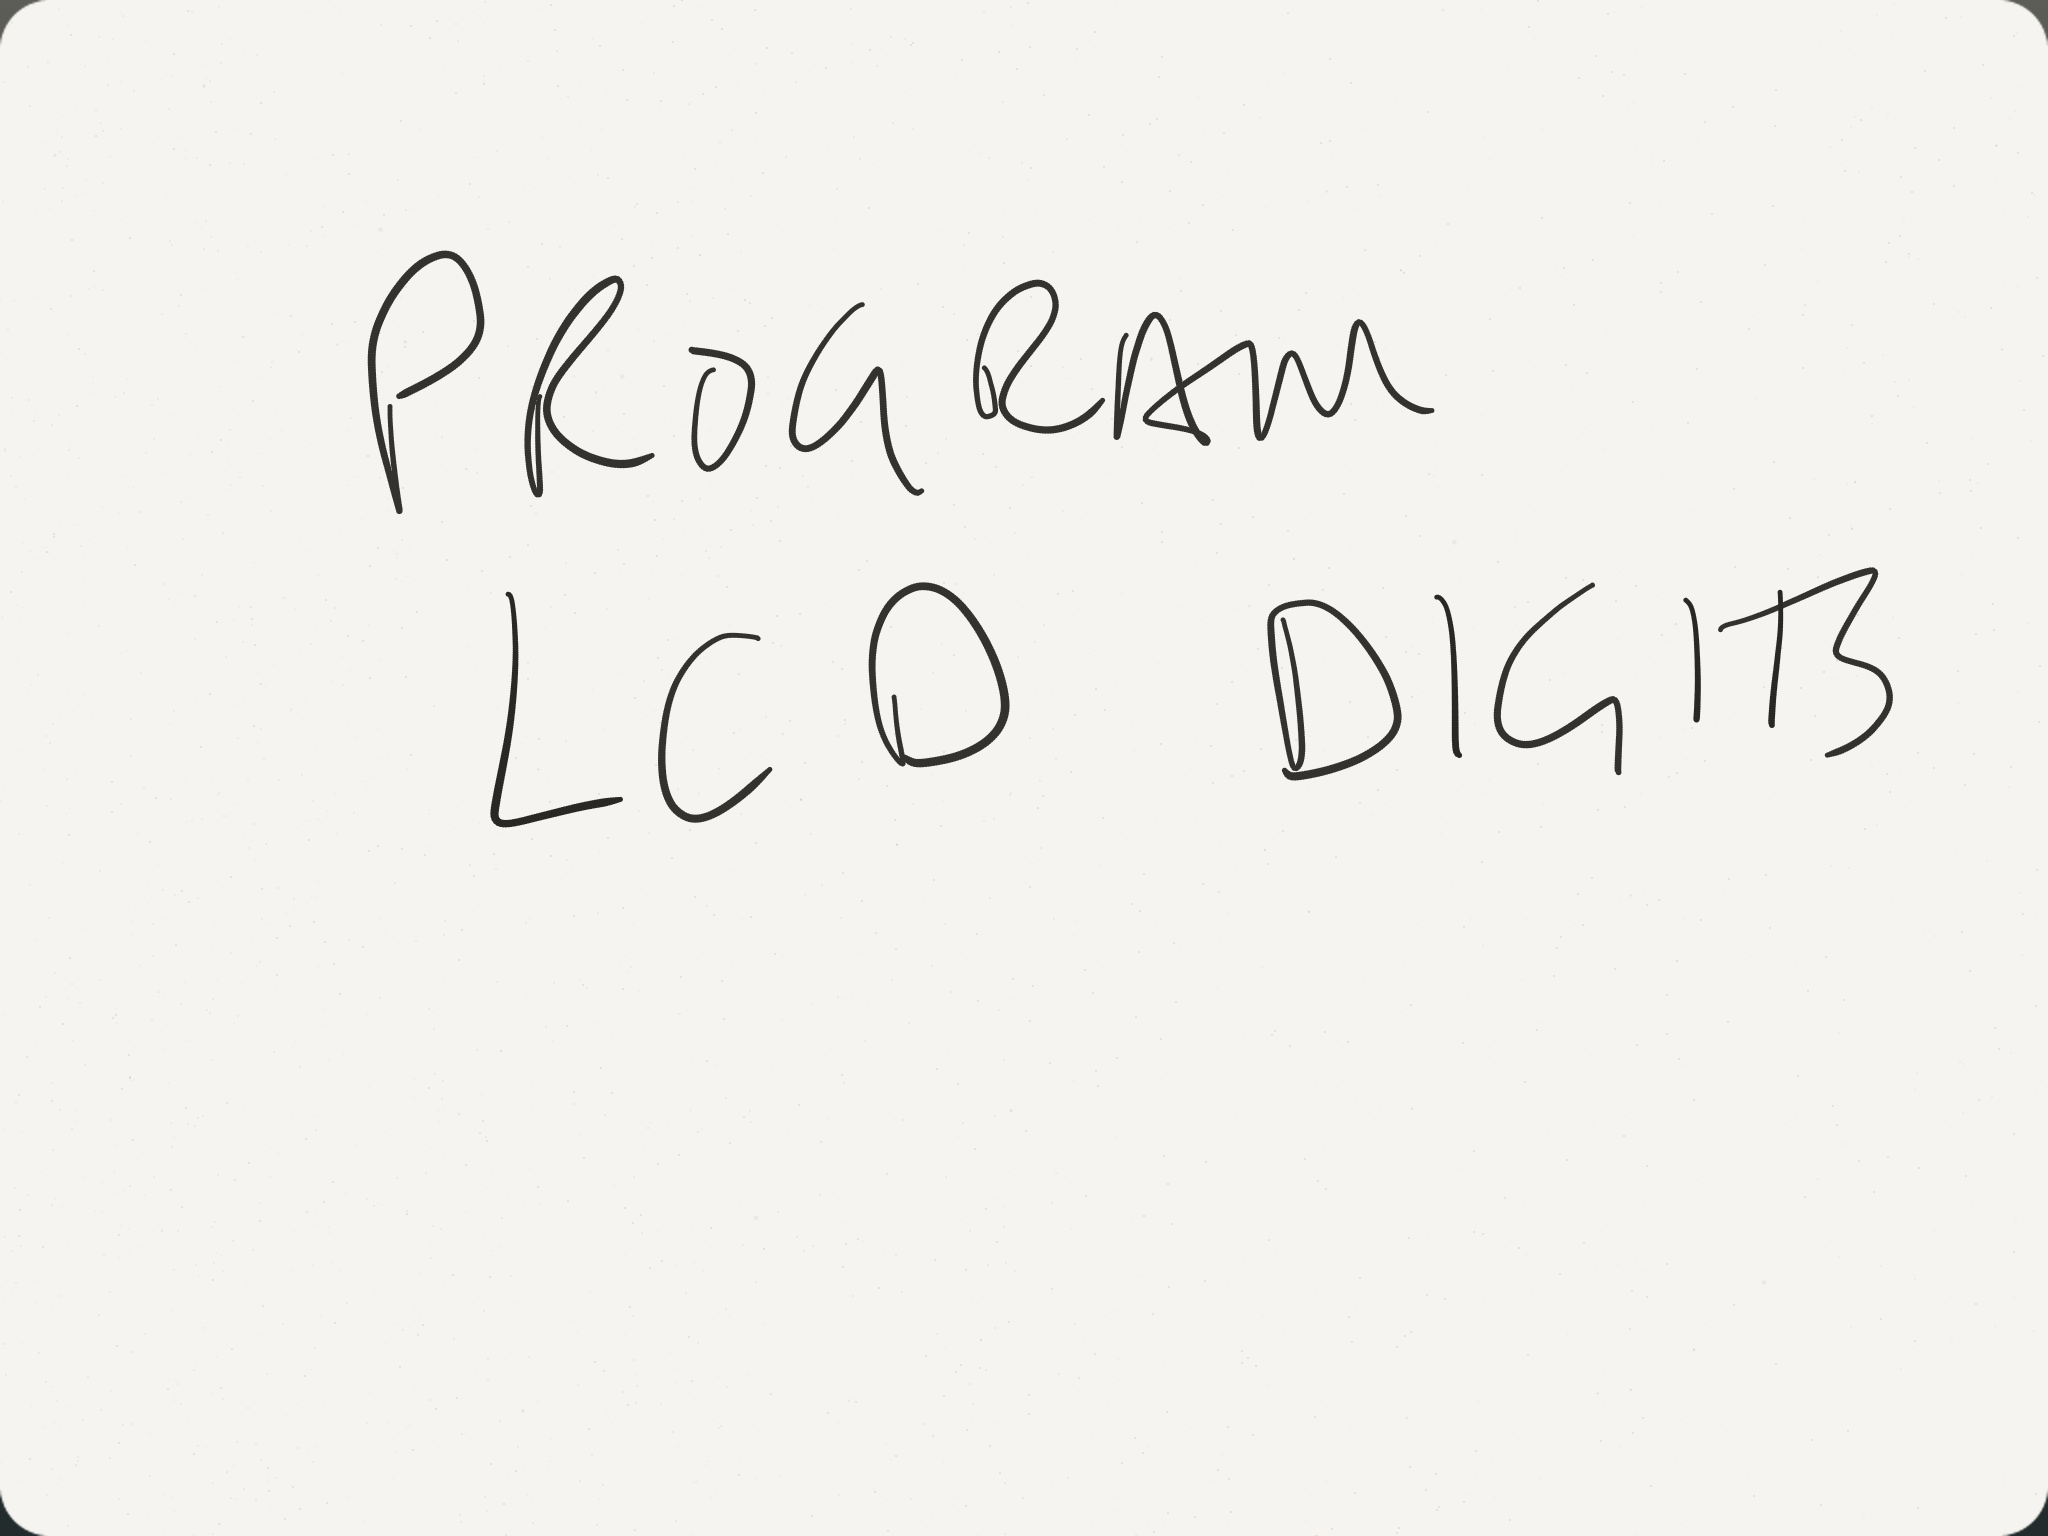 PROGRAM
LCD DIGITS